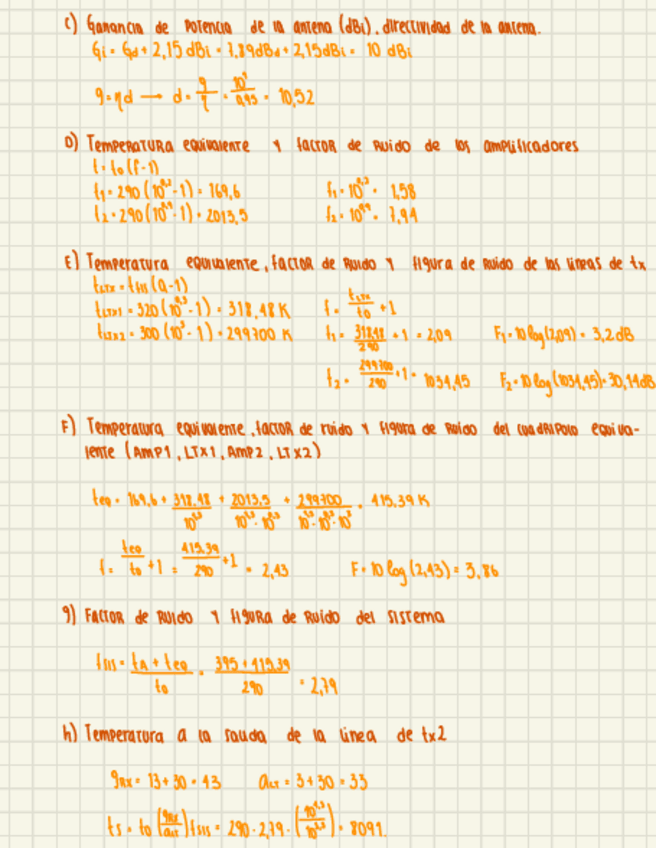 c) Ganancia de potencia de la antena (dBi), directividad de la antena.
Gi = Gd + 2,15 dBi = 7,89dBd + 2,15dBi = 10 dBi
g = ηd → d = g/η = 10^1/0,95 = 10,52
D) Temperatura equivalente y factor de ruido de los amplificadores
t = to(f-1)
t1 = 290(10^0,2 - 1) = 169,6 f1 = 10^0,2 = 1,58
t2 = 290(10^0,9 - 1) = 2013,5 f2 = 10^0,9 = 7,94
E) Temperatura equivalente, factor de ruido y figura de ruido de las líneas de tx
tLTx = tfis(a-1)
tLTx1 = 320(10^0,3 - 1) = 318,48 K f = tLTx/to + 1
tLTx2 = 300(10^3 - 1) = 299700 K f1 = 318,48/290 + 1 = 2,09 F1 = 10 log(2,09) = 3,2dB
f2 = 299700/290 + 1 = 1034,45 F2 = 10 log(1034,45) = 30,14dB
F) Temperatura equivalente, factor de ruido y figura de ruido del cuadripolo equiva-
lente (Amp1, LTx1, Amp2, LTx2)
teq = 169,6 + 318,48/ + 2013,5/ + 299700/ = 415,39 K
f = teq/to + 1 = 415,39/290 + 1 = 2,43 F = 10 log(2,43) = 3,86
g) Factor de ruido y figura de ruido del sistema
fsis = tA + teq/to = 395 + 415,39/290 = 2,79
h) Temperatura a la salida de la línea de tx2
gRx = 13 + 30 = 43 aLT = 3 + 30 = 33
ts = to(gRx/aLT)fsis = 290 · 2,79 · (10^4,3/10^3,3) = 8091